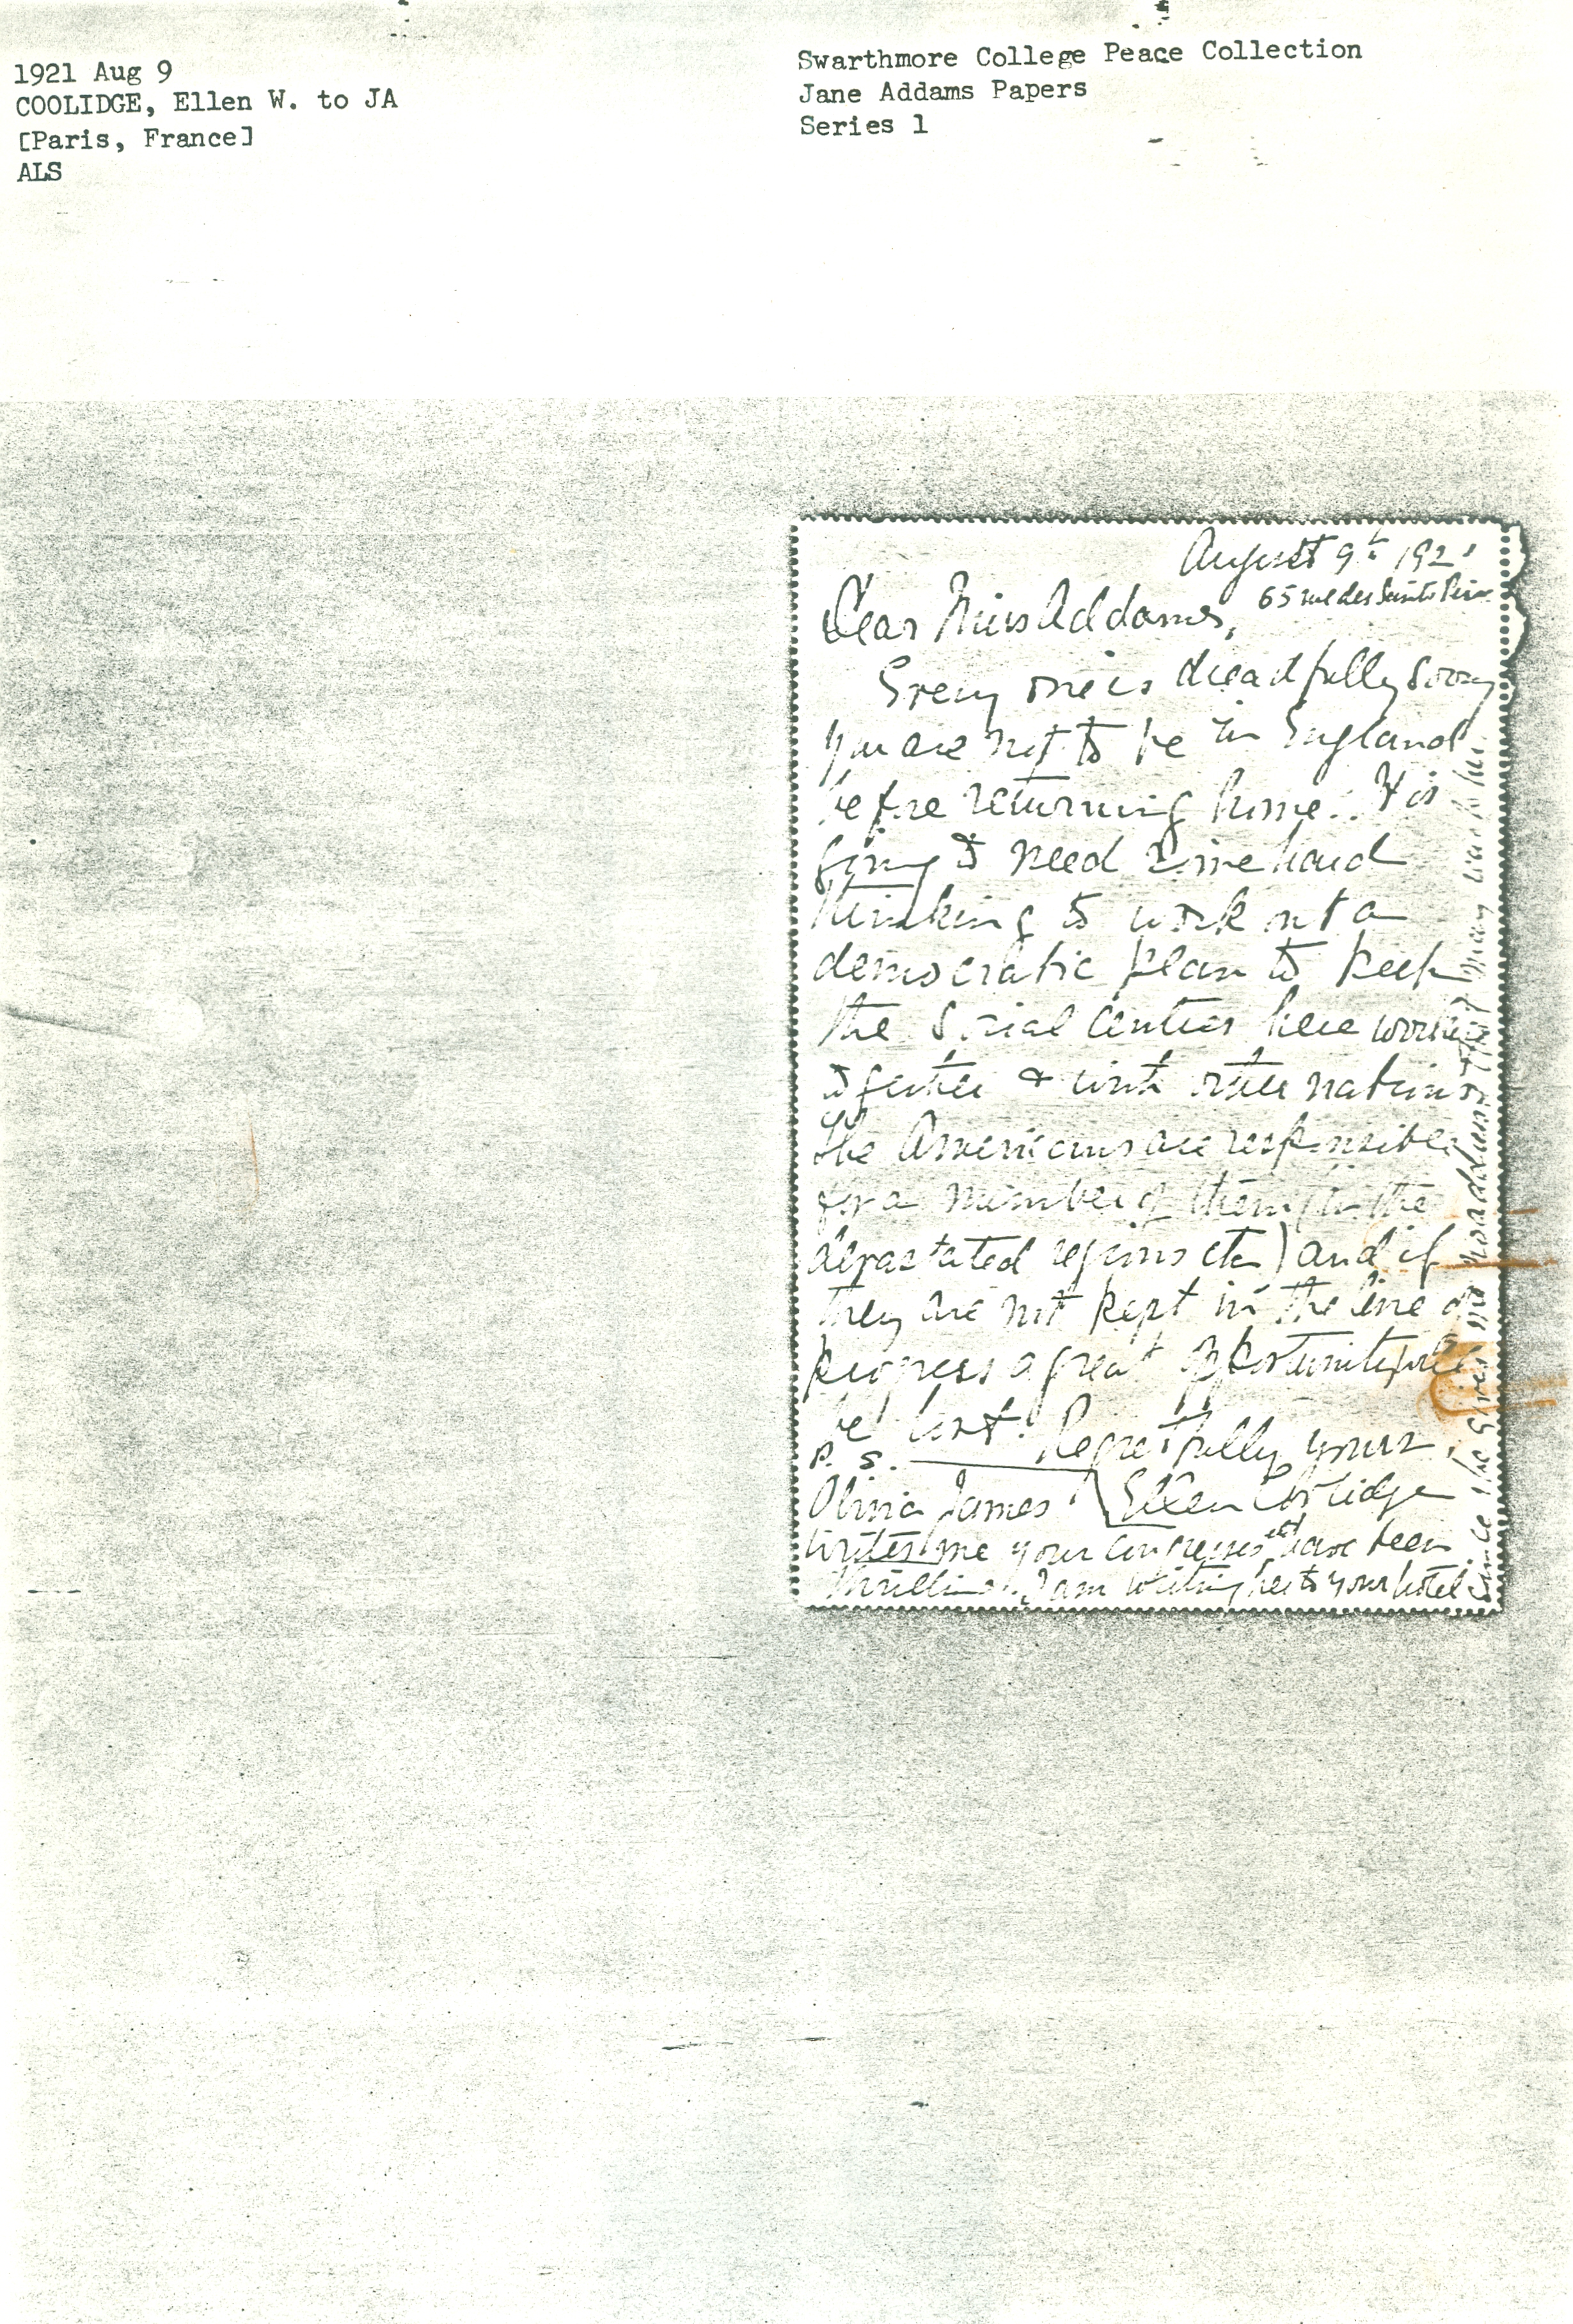 1921 Aug 9
COOLIDGE, Ellen W. to JA
[Paris, France]
ALS
Swarthmore College Peace Collection
Jane Addams Papers
Series 1
August 9th 1921
65 rue des Saints Pères
Dear Miss Addams,
Every one is dreadfully sorry
you are not to be in England
before returning home. It is
going to need some hard
thinking to work out a
democratic plan to keep
the social centres here working
together & with other nations
The Americans are responsible
for a number of them (in the
devastated regions etc) and if
they are not kept in the line of
progress a great opportunity will
be lost! Regretfully yours,
Ellen Coolidge
P. S.
Olivia James
writes me your congresses have been
thrilling! I am writing her to your hotel
since she gives no address & that may reach her.